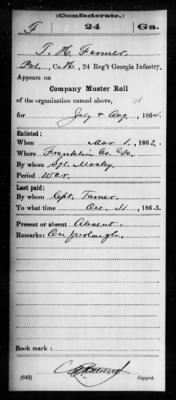 (Confederate.)
F 24 Ga.
T. H. Farmer
Pvt., Co. K, 24 Reg't Georgia Infantry.
Appears on
Company Muster Roll
of the organization named above,
for July & Aug, 1864.
Enlisted:
When Mar 1, 1862.
Where Franklin Co. Ga.
By whom Sgt. Mosley
Period War.
Last paid:
By whom Capt. Turner
To what time Dec. 31, 1863.
Present or absent Absent.
Remarks: On furlough.
Book mark:
(642) Copyist.